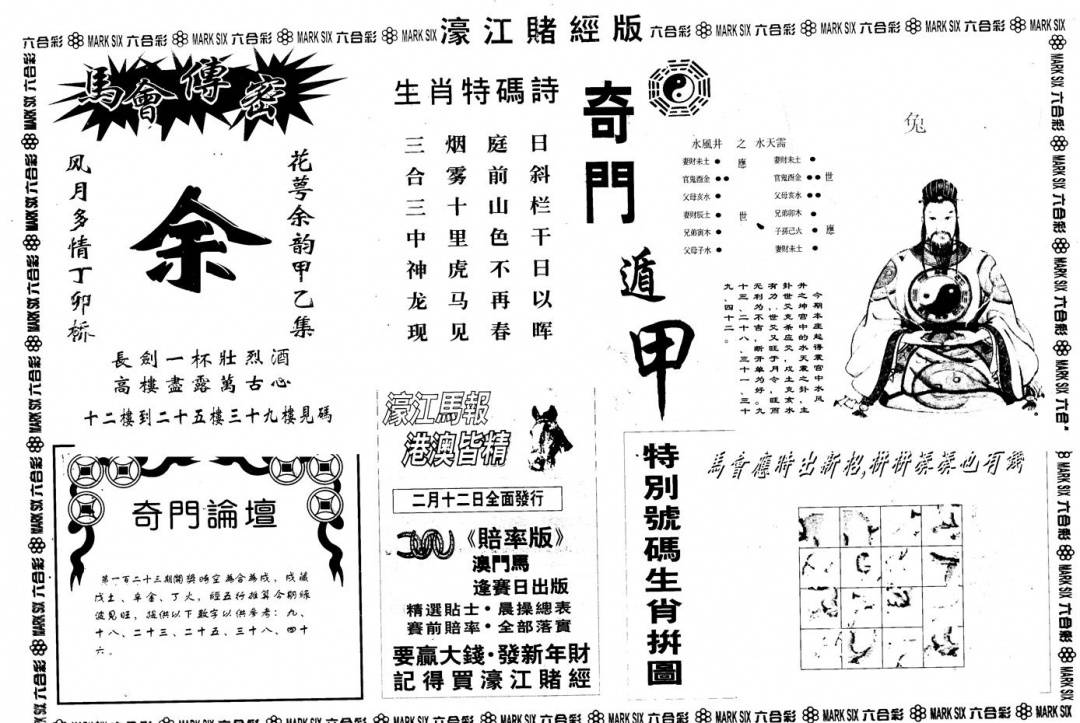 濠江賭經版
六合彩 MARK SIX 六合彩 MARK SIX 六合彩 MARK SIX 六合彩 MARK SIX
六合彩 MARK SIX 六合彩 MARK SIX 六合彩 MARK SIX 六合彩 MARK SIX
馬會傳密
花萼余韵甲乙集
余
风月多情丁卯桥
長劍一杯壯烈酒
高樓盡露萬古心
十二樓到二十五樓三十九樓見碼
生肖特碼詩
日斜栏干日以晖
庭前山色不再春
烟雾十里虎马见
三合三中神龙现
奇門遁甲
水風井 之 水天需
妻財未土 應 妻財未土
官鬼酉金 官鬼酉金 世
父母亥水 父母亥水
妻財辰土 世 兄弟卯木
兄弟寅木 子孫己火 應
父母子水 妻財未土
兔
今期本座起得震宫中水风
井之坤宫中的水天需之卦，主
卦世爻克应爻，戌土克亥水
有力，世爻又旺于月令，旺而
无利为不吉，断开单为好。九
十三、二十八、三十一、三十
九、四十二。
奇門論壇
第一百二十三期開獎時空為合為戌，戌藏
戊土、辛金、丁火，經五行推算今期綠
波見旺，提供以下數字以供參考：九、
十八、二十三、二十五、三十八、四十
六。
濠江馬報
港澳皆精
二月十二日全面發行
《賠率版》
澳門馬
逢賽日出版
精選貼士·晨操總表
賽前賠率·全部落實
要贏大錢·發新年財
記得買濠江賭經
特別號碼生肖拼圖
馬會應時出新招,拼拼湊湊也有錢